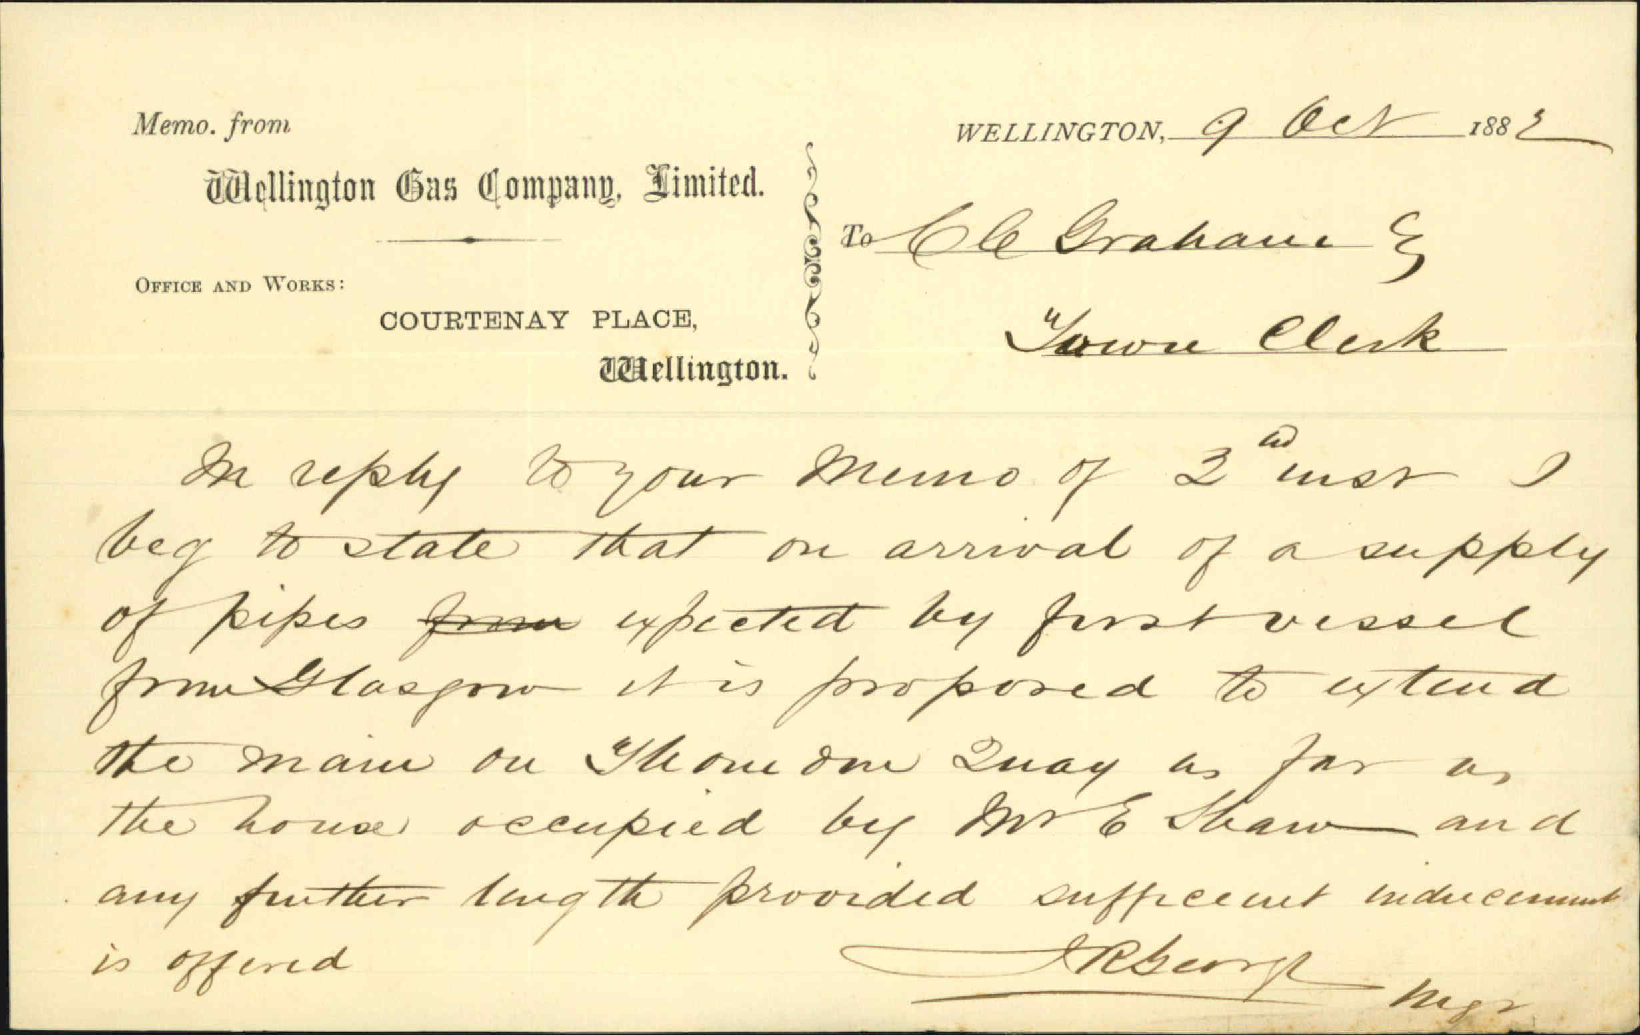 Memo. from
Wellington Gas Company, Limited.
OFFICE AND WORKS:
COURTENAY PLACE,
Wellington.
WELLINGTON, 9 Oct 1882
To C C Graham Esq
Town Clerk
In reply to your Memo of 2nd inst I
beg to state that on arrival of a supply
of pipes from expected by first vessel
from Glasgow it is proposed to extend
the main on Thorndon Quay as far as
the house occupied by Mr E Shaw and
any further length provided sufficient inducement
is offered
J R George
Mgr